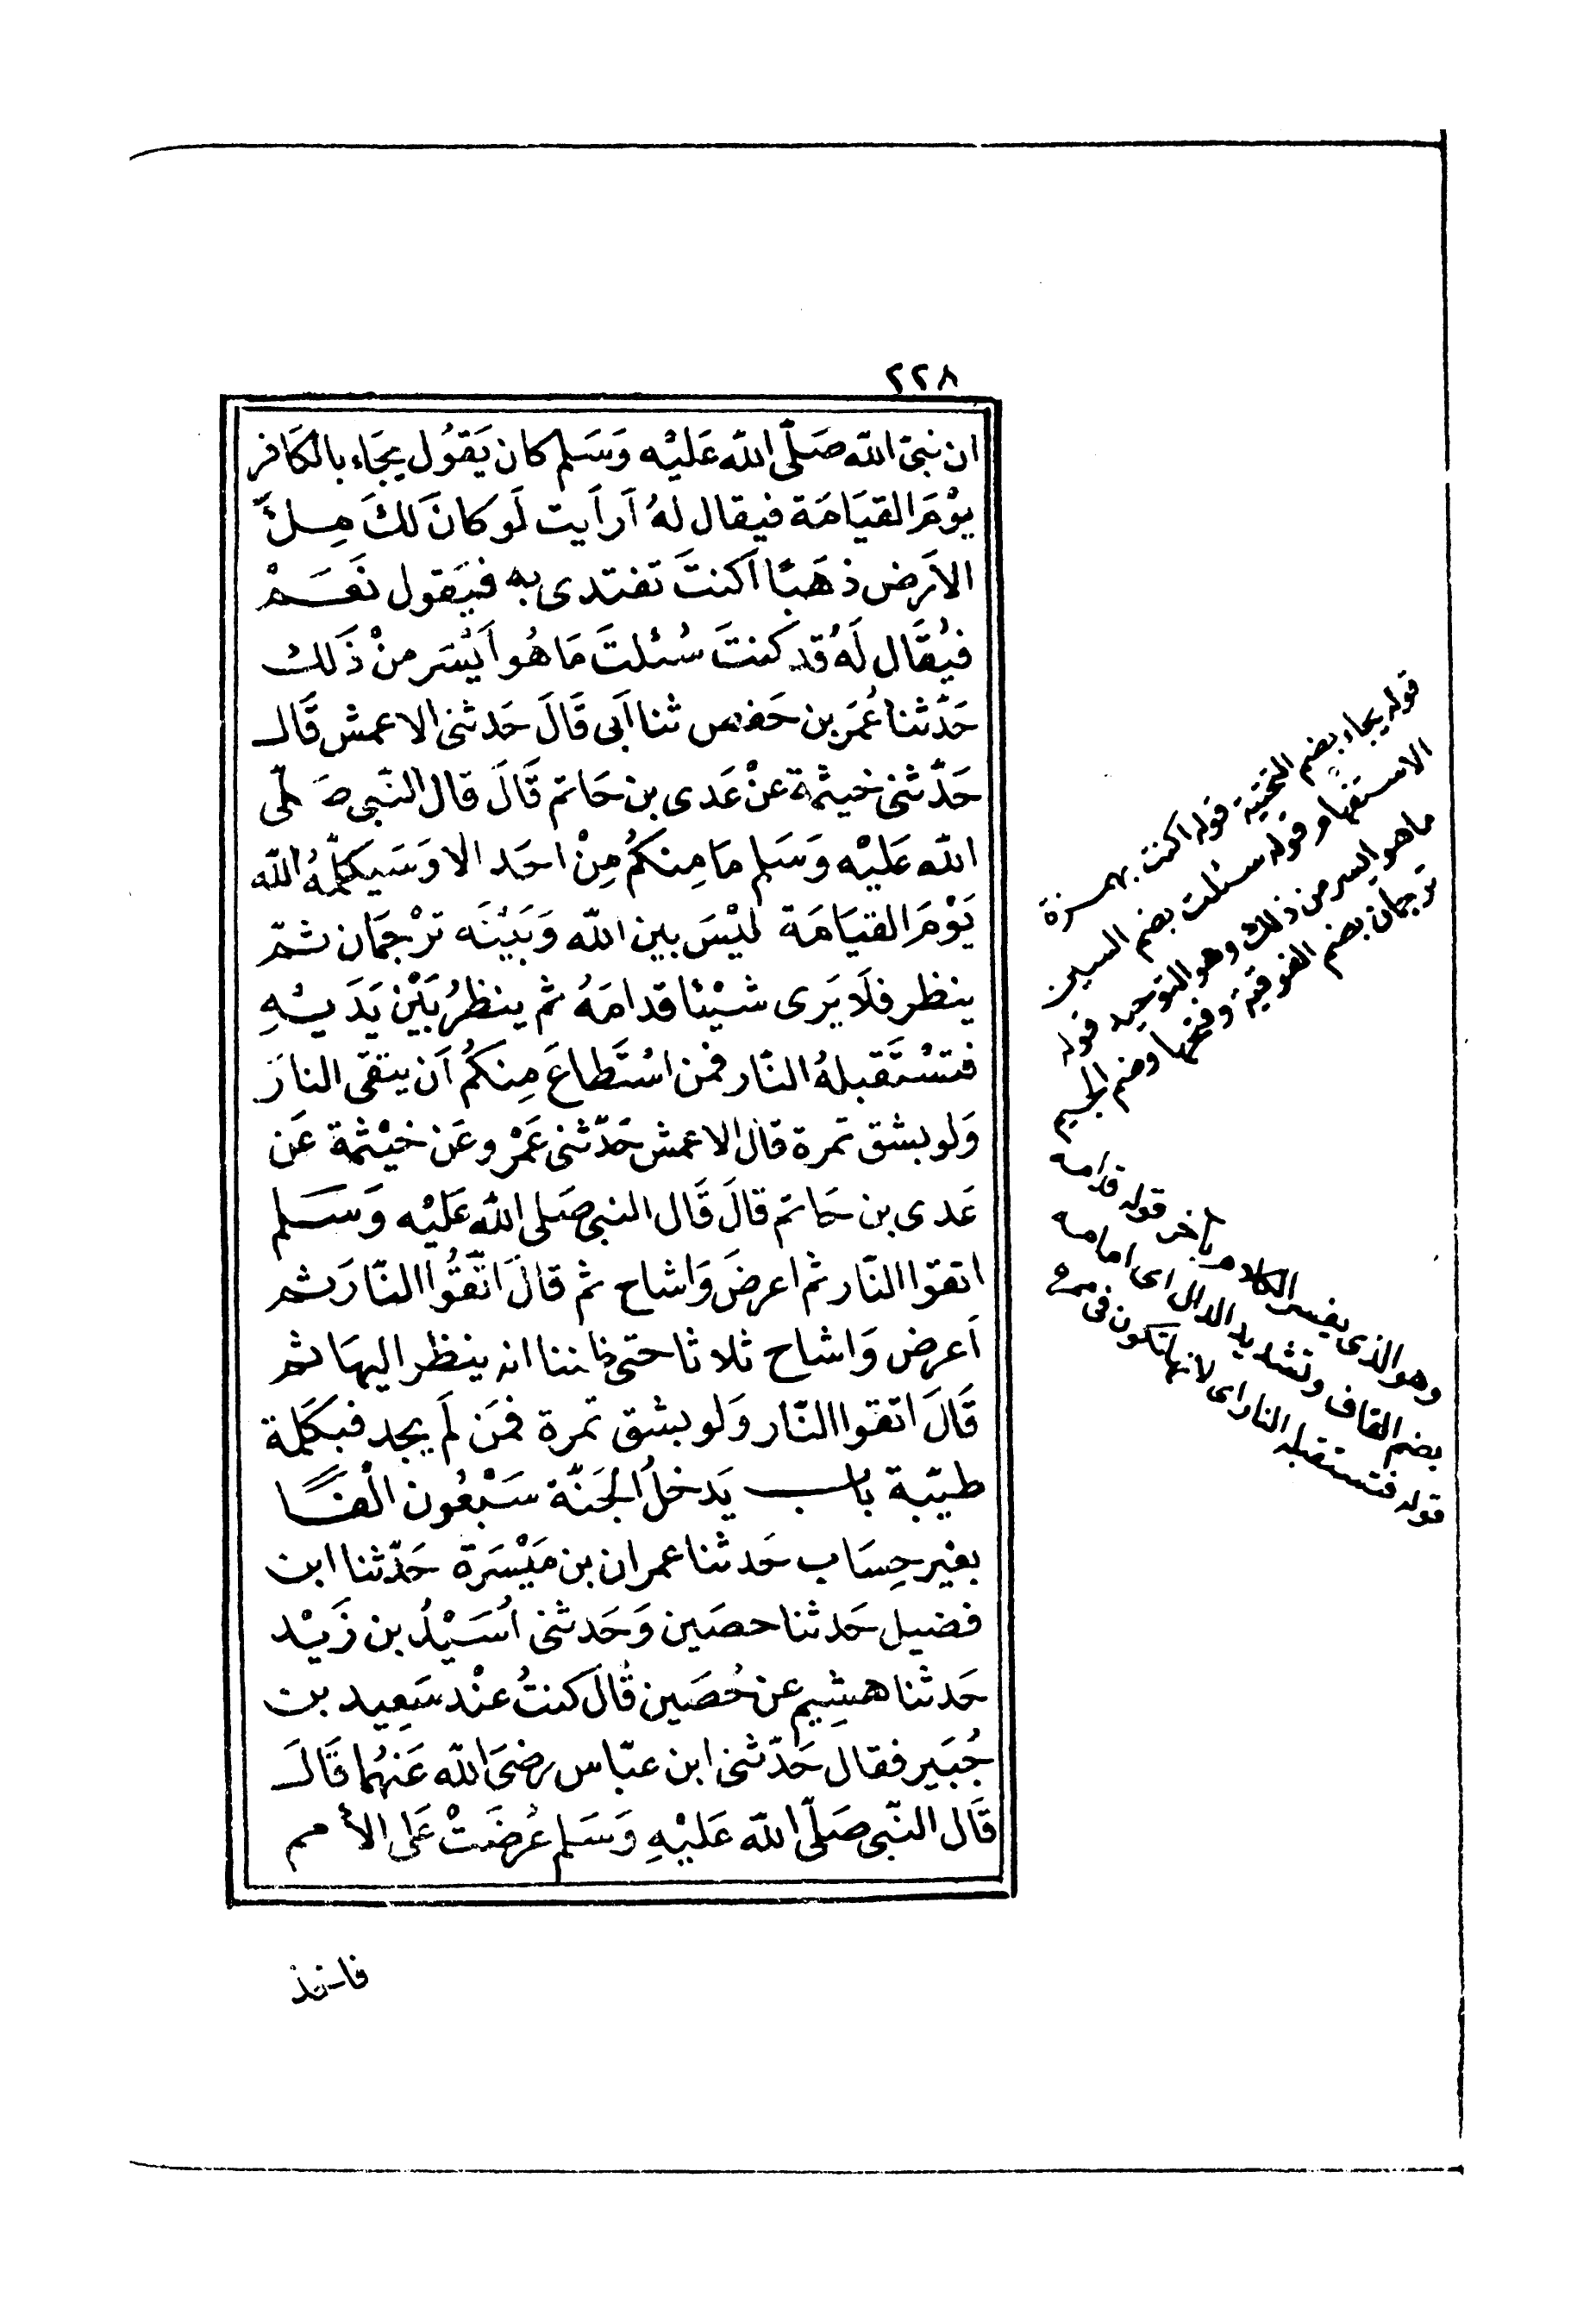 ٢٢٨
ان نبىّ الله صَلّى الله عَليْه وَسَلم كان يَقوُل يجَاء بالكَافر
يوْمَ القيَامَة فيقال لهُ أرأيت لَو كانَ لكَ مِلءُ
الاَرض ذهَبًا أكنتَ تفتدى به فيَقول نعَمْ
فيُقَال لَهُ قد كنتَ سُئلتَ مَا هُو اَيْسَر منْ ذَلك
حَدّثنا عُمَر بن حَفص ثنا اَبى قَالَ حَدثنى الاعمش قَال
حَدّثنى خيثمة عنْ عَدى بن حَاتم قَالَ قال النّبى صَلّى
الله عَليْه وَسَلم مَا مِنكُم مِنْ احَد الا وَسَيكلّمهُ الله
يَوْمَ القيَامَة ليْسَ بين الله وَبَيْنَه ترْجمَان ثمّ
ينظر فلَا يَرى شيْئا قدامَهُ ثم ينظرُ بَيْن يَدَيْهِ
فتسْتَقبلهُ النّار فمن اسْتَطاعَ مِنكُم اَن يتقى النارَ
وَلو بشق تمرة قال الاعمش حَدّثنى عَمْرو عَن خيْثمة عَن
عَدى بن حَاتم قالَ قَال النبى صَلى الله عَليْه وَسَلم
اتقوا النّار ثم اعرضَ وَاشاح ثم قالَ اتّقُوا النّارَ ثم
اَعرض وَاشاح ثلاثا حَتى ظننا انه ينظر اليهَا ثم
قَالَ اتقوا النّار وَلو بشق تمرة فمَن لَم يجد فبكَلمة
طيّبة باب يَدخلُ الجَنّة سَبْعُون الْفًا
بغير حِسَاب حَدثنا عمران بن مَيْسَرَة حَدّثنا ابن
فضيل حَدثنا حصَين وَحَدثنى اُسَيْدُ بن زَيْد
حَدثنا هشِيم عن حُصَين قَالَ كنتُ عنْد سَعِيد بن
جُبَير فقال حَدّثنى ابن عبّاس رضىَ الله عَنهُما قَالَ
قَال النّبى صَلّى الله عَليْهِ وَسَلم عُرضَتْ عَلى الأمم
فاخذ
قوله يجاء بضم التحتية قوله اكنت بهمزة
الاستفهام قوله سئلت بضم السين
ما هو ايسر من ذلك وهو التوحيد قوله
ترجمان بضم الفوقية وفتحها وضم الجيم
وهو الذى يفسر الكلام بآخر قوله قدامه
بضم القاف وتشديد الدال اى امامه
قوله فتستقبله النار اى لانها تكون فى